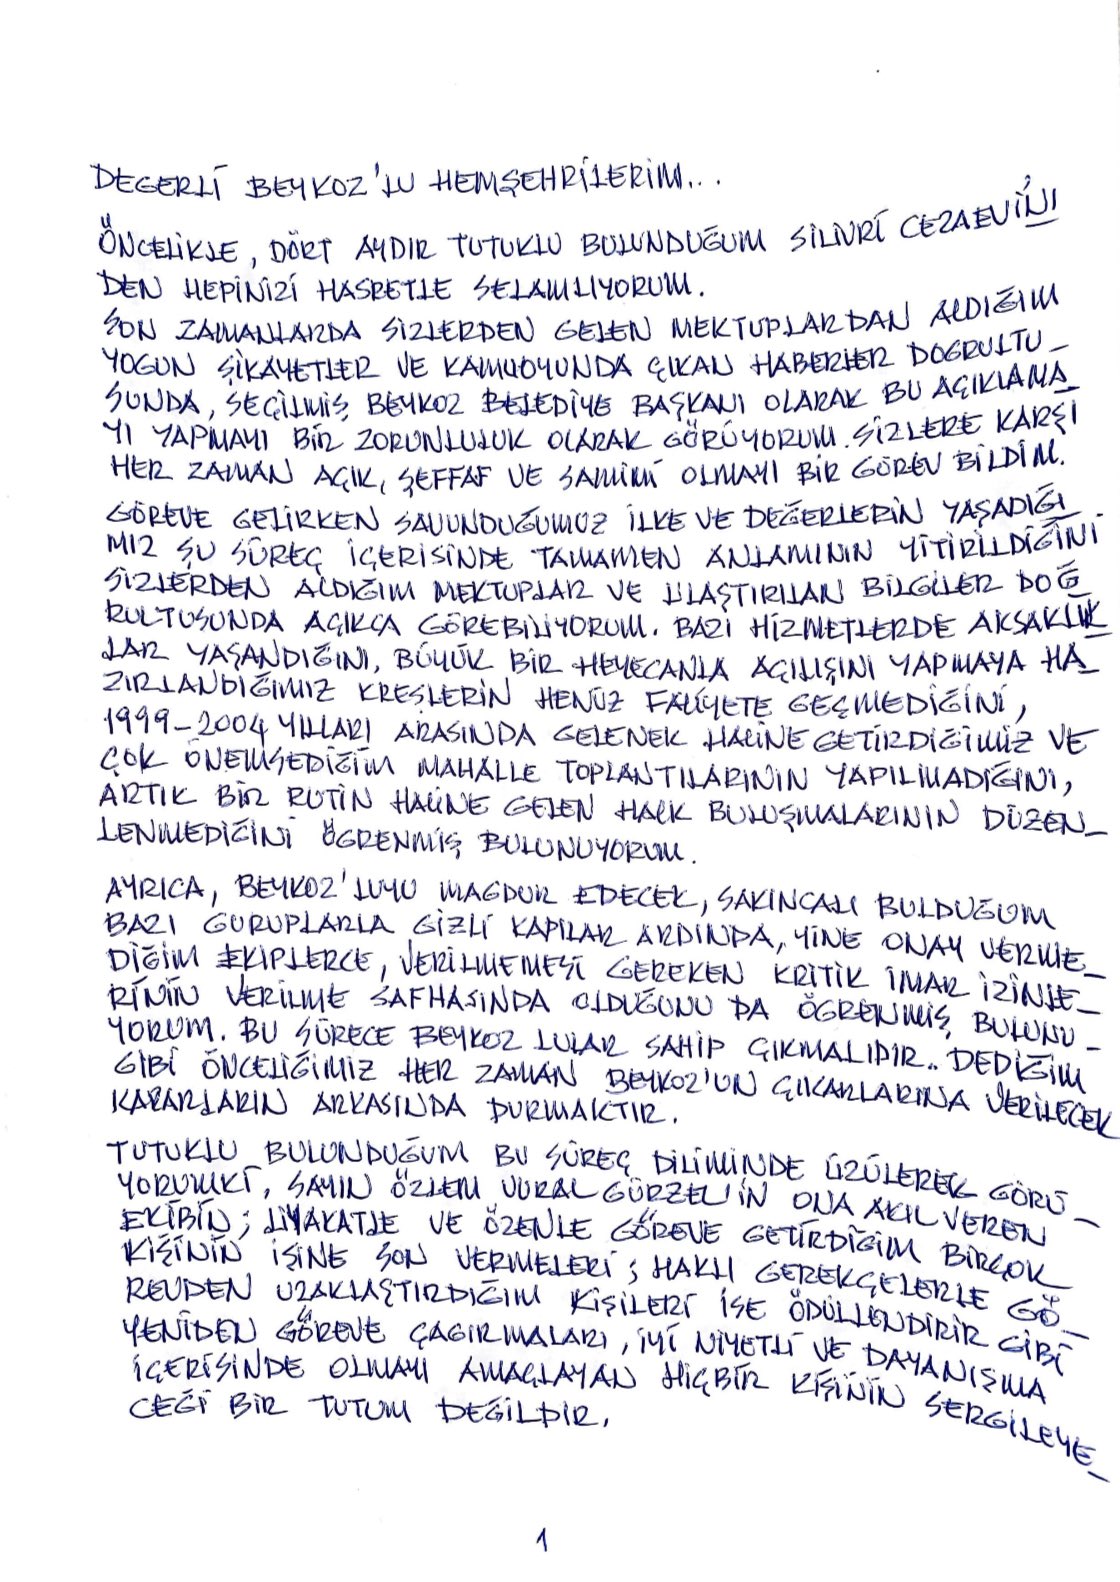 DEGERLİ BEYKOZ'LU HEMŞEHRİLERİM...
ÖNCELİKLE, DÖRT AYDIR TUTUKLU BULUNDUĞUM SİLİVRİ CEZAEVİNİ
DEN HEPİNİZİ HASRETLE SELAMLIYORUM.
SON ZAMANLARDA SİZLERDEN GELEN MEKTUPLARDAN ALDIĞIM
YOGUN ŞİKAYETLER VE KAMUOYUNDA ÇIKAN HABERLER DOGRULTU_
SUNDA, SEÇİLMİŞ BEYKOZ BELEDİYE BAŞKANI OLARAK BU AÇIKLAMA_
YI YAPMAYI BİR ZORUNLULUK OLARAK GÖRÜYORUM. SİZLERE KARŞI
HER ZAMAN AÇIK, ŞEFFAF VE SAMİMİ OLMAYI BİR GÖREV BİLDİM.
GÖREVE GELİRKEN SAVUNDUĞUMUZ İLKE VE DEĞERLERİN YAŞADIĞI_
MIZ ŞU SÜREÇ İÇERİSİNDE TAMAMEN ANLAMININ YİTİRİLDİĞİNİ
SİZLERDEN ALDIĞIM MEKTUPLAR VE ULAŞTIRILAN BİLGİLER DOĞ_
RULTUSUNDA AÇIKÇA GÖREBİLİYORUM. BAZI HİZMETLERDE AKSAKLIK_
LAR YAŞANDIĞINI, BÜYÜK BİR HEYECANLA AÇILIŞINI YAPMAYA HA_
ZIRLANDIĞIMIZ KREŞLERİN HENÜZ FALİYETE GEÇMEDİĞİNİ,
1999-2004 YILLARI ARASINDA GELENEK HALİNE GETİRDİĞİMİZ VE
ÇOK ÖNEMSEDİĞİM MAHALLE TOPLANTILARININ YAPILMADIĞINI,
ARTIK BİR RUTİN HALİNE GELEN HALK BULUŞMALARININ DÜZEN_
LENMEDİĞİNİ ÖĞRENMİŞ BULUNUYORUM.
AYRICA, BEYKOZ'LUYU MAGDUR EDECEK, SAKINCALI BULDUĞUM
BAZI GURUPLARLA GİZLİ KAPILAR ARDINDA, YİNE ONAY VERME_
DİĞİM EKİPLERCE, VERİLMEMESİ GEREKEN KRİTİK İMAR İZİNLE_
RİNİN VERİLME SAFHASINDA OLDUĞUNU DA ÖĞRENMİŞ BULUNU_
YORUM. BU SÜRECE BEYKOZ LULAR SAHİP ÇIKMALIDIR.. DEDİĞİM
GİBİ ÖNCELİĞİMİZ HER ZAMAN BEYKOZ'UN ÇIKARLARINA VERİLECEK
KARARLARIN ARKASINDA DURMAKTIR.
TUTUKLU BULUNDUĞUM BU SÜREÇ DİLİMİNDE ÜZÜLEREK GÖRÜ_
YORUMKİ, SAYIN ÖZLEM VURAL GÜRZEL'İN ONA AKIL VEREN
EKİBİN; LİYAKATLE VE ÖZENLE GÖREVE GETİRDİĞİM BİRÇOK
KİŞİNİN İŞİNE SON VERMELERİ; HAKLI GEREKÇELERLE GÖ_
REVDEN UZAKLAŞTIRDIĞIM KİŞİLERİ İSE ÖDÜLLENDİRİR GİBİ
YENİDEN GÖREVE ÇAĞIRMALARI, İYİ NİYETLİ VE DAYANIŞMA
İÇERİSİNDE OLMAYI AMAÇLAYAN HİÇBİR KİŞİNİN SERGİLEYE_
CEĞİ BİR TUTUM DEĞİLDİR.
1